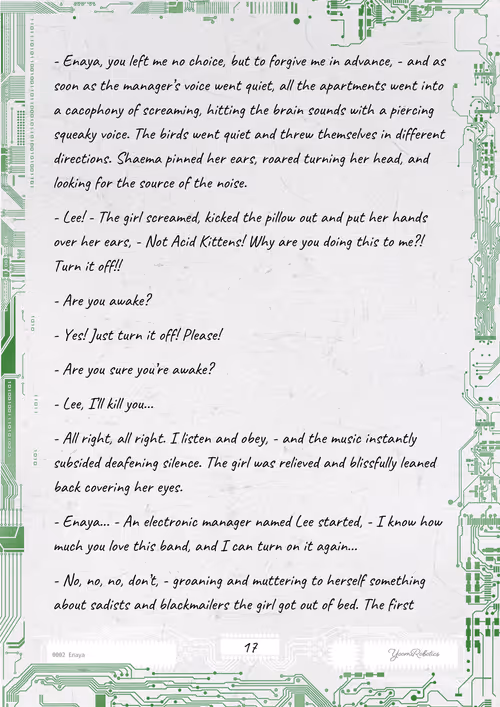 - Enaya, you left me no choice, but to forgive me in advance, - and as
soon as the manager's voice went quiet, all the apartments went into
a cacophony of screaming, hitting the brain sounds with a piercing
squeaky voice. The birds went quiet and threw themselves in different
directions. Shaema pinned her ears, roared turning her head, and
looking for the source of the noise.
- Lee! - The girl screamed, kicked the pillow out and put her hands
over her ears, - Not Acid Kittens! Why are you doing this to me?!
Turn it off!!
- Are you awake?
- Yes! Just turn it off! Please!
- Are you sure you're awake?
- Lee, I'll kill you...
- All right, all right. I listen and obey, - and the music instantly
subsided deafening silence. The girl was relieved and blissfully leaned
back covering her eyes.
- Enaya... - An electronic manager named Lee started, - I know how
much you love this band, and I can turn on it again...
- No, no, no, don't, - groaning and muttering to herself something
about sadists and blackmailers the girl got out of bed. The first
0002 Enaya
17
YoomRobotics